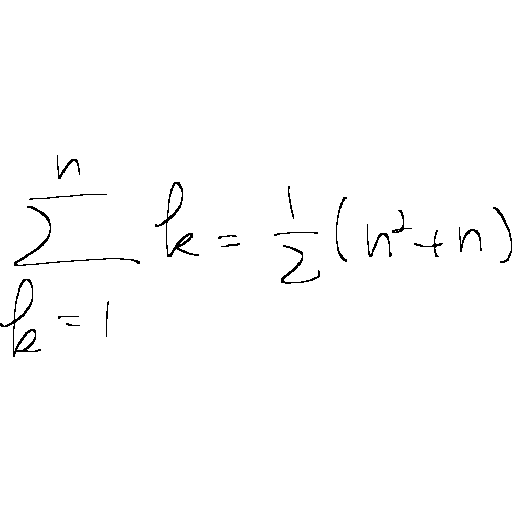 \sum_{k=1}^{n} k = \frac{1}{2}(n^2+n)